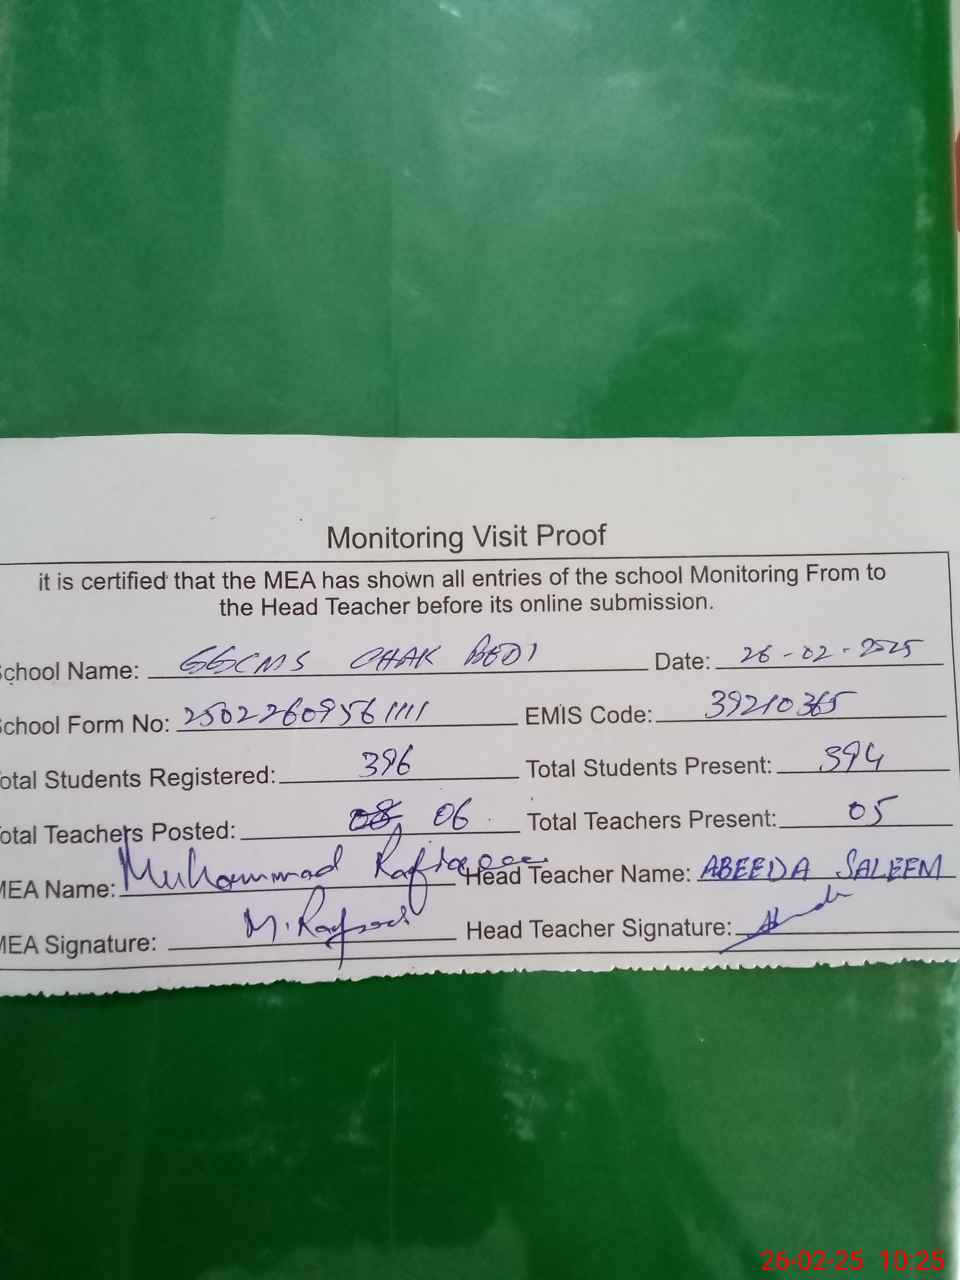 Monitoring Visit Proof
it is certified that the MEA has shown all entries of the school Monitoring From to
the Head Teacher before its online submission.
School Name: GGCMS CHAK BEDI Date: 26-02-2025
School Form No: 25022609561111 EMIS Code: 39210365
Total Students Registered: 396 Total Students Present: 394
Total Teachers Posted: 08 06 Total Teachers Present: 05
MEA Name: Muhammad Head Teacher Name: ABEEDA SALEEM
MEA Signature: M. Head Teacher Signature:
26-02-25 10:25